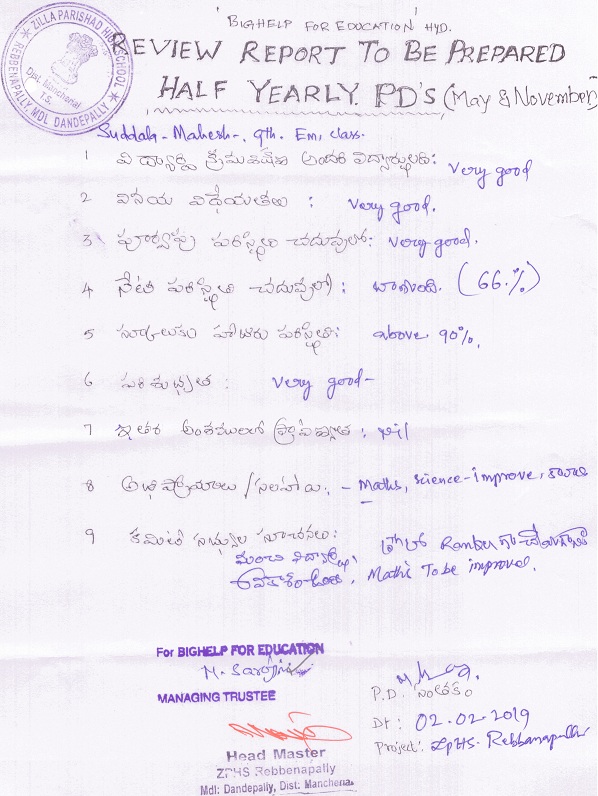 BIGHELP FOR EDUCATION HYD.
REVIEW REPORT TO BE PREPARED
HALF YEARLY. PD'S (May & November)
ZILLA PARISHAD HIGH SCHOOL
REBBENAPALLY, MDL DANDEPALLY
Dist. Mancherial
T.S.
Suddala - Mahesh-, 9th. Em, class.
1 విద్యార్థి క్రమశిక్షణ Very good
2 వినయ విధేయతలు : Very good.
3 పూర్వపు పరిస్థితి చదువులో: Very good.
4 నేటి పరిస్థితి చదువులో : బాగుంది. (66.%)
5 స్కూలుకు హాజరు పరిస్థితి: above 90%.
6 పరిశుభ్రత : Very good-
7 ఇతర అంశములలో ప్రావీణ్యత : nil
8 అభిప్రాయాలు /సలహాలు, - Maths, Science-improve, కావాలి
9 కమిటి సభ్యుల సూచనలు:
మంచి విద్యార్థి, Ranker
అవకాశం ఉంది, Maths To be improved.
For BIGHELP FOR EDUCATION
MANAGING TRUSTEE
P.D. సంతకం
Dt : 02.02.2019
Project: ZPHS. Rebbanapally
Head Master
ZPHS Rebbenapally
Mdl: Dandepally, Dist: Mancherial.